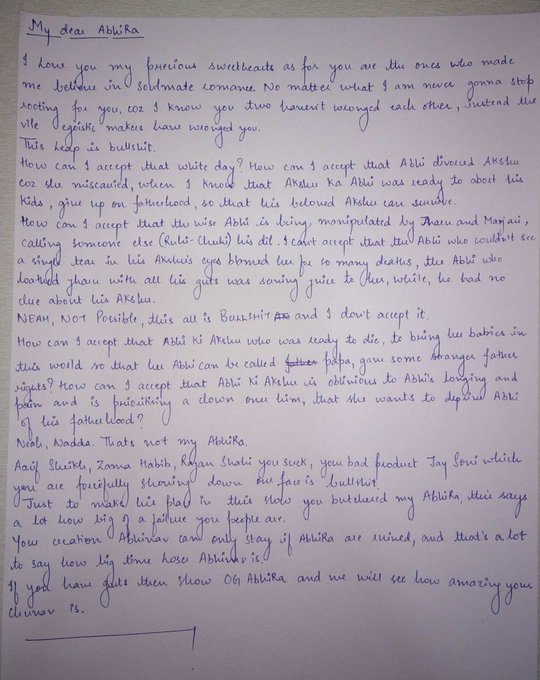 My dear AbhiRa
I Love you my precious sweethearts as for you are the ones who made
me believe in Soulmate romance. No matter what I am never gonna stop
rooting for you, coz I know you two haven't wronged each other, instead the
vile egoistic makers have wronged you.
This leap is bullshit.
How can I accept that white day? How can I accept that Abhi divorced Akshu
coz she miscarried, when I know that Akshu Ka Abhi was ready to abort his
Kids, give up on fatherhood, so that his beloved Akshu can survive.
How can I accept that the wise Abhi is being manipulated by and Manjari,
calling someone else (Ruhi-Chuhi) his dil. I can't accept that the Abhi who couldn't see
a single tear in his Akshu's eyes blamed her for so many deaths, the Abhi who
loathed with all his guts was serving juice to her, while, he had no
clue about his Akshu.
NEAH, NOT Possible, this all is BULLSHIT and I don't accept it.
How can I accept that Abhi Ki Akshu who was ready to die, to bring her babies in
this world so that her Abhi can be called father papa, gave some stranger father
rights? How can I accept that Abhi Ki Akshu is oblivious to Abhi's longing and
pain and is prioritising a clown over him, that she wants to deprive Abhi
of his fatherhood?
Neah, Nadda. Thats not my AbhiRa.
Aarif Sheikh, Zama Habib, Rajan Shahi you suck, you bad product Jay Soni which
you are forcefully shoving down our face is bullshit.
Just to make his place in this show you butchered my AbhiRa, this says
a lot how big of a failure you people are.
Your creation Abhinav can only stay if AbhiRa are ruined, and that's a lot
to say how big time loser Abhinav is.
If you have guts then show OG AbhiRa and we will see how amazing your
is.